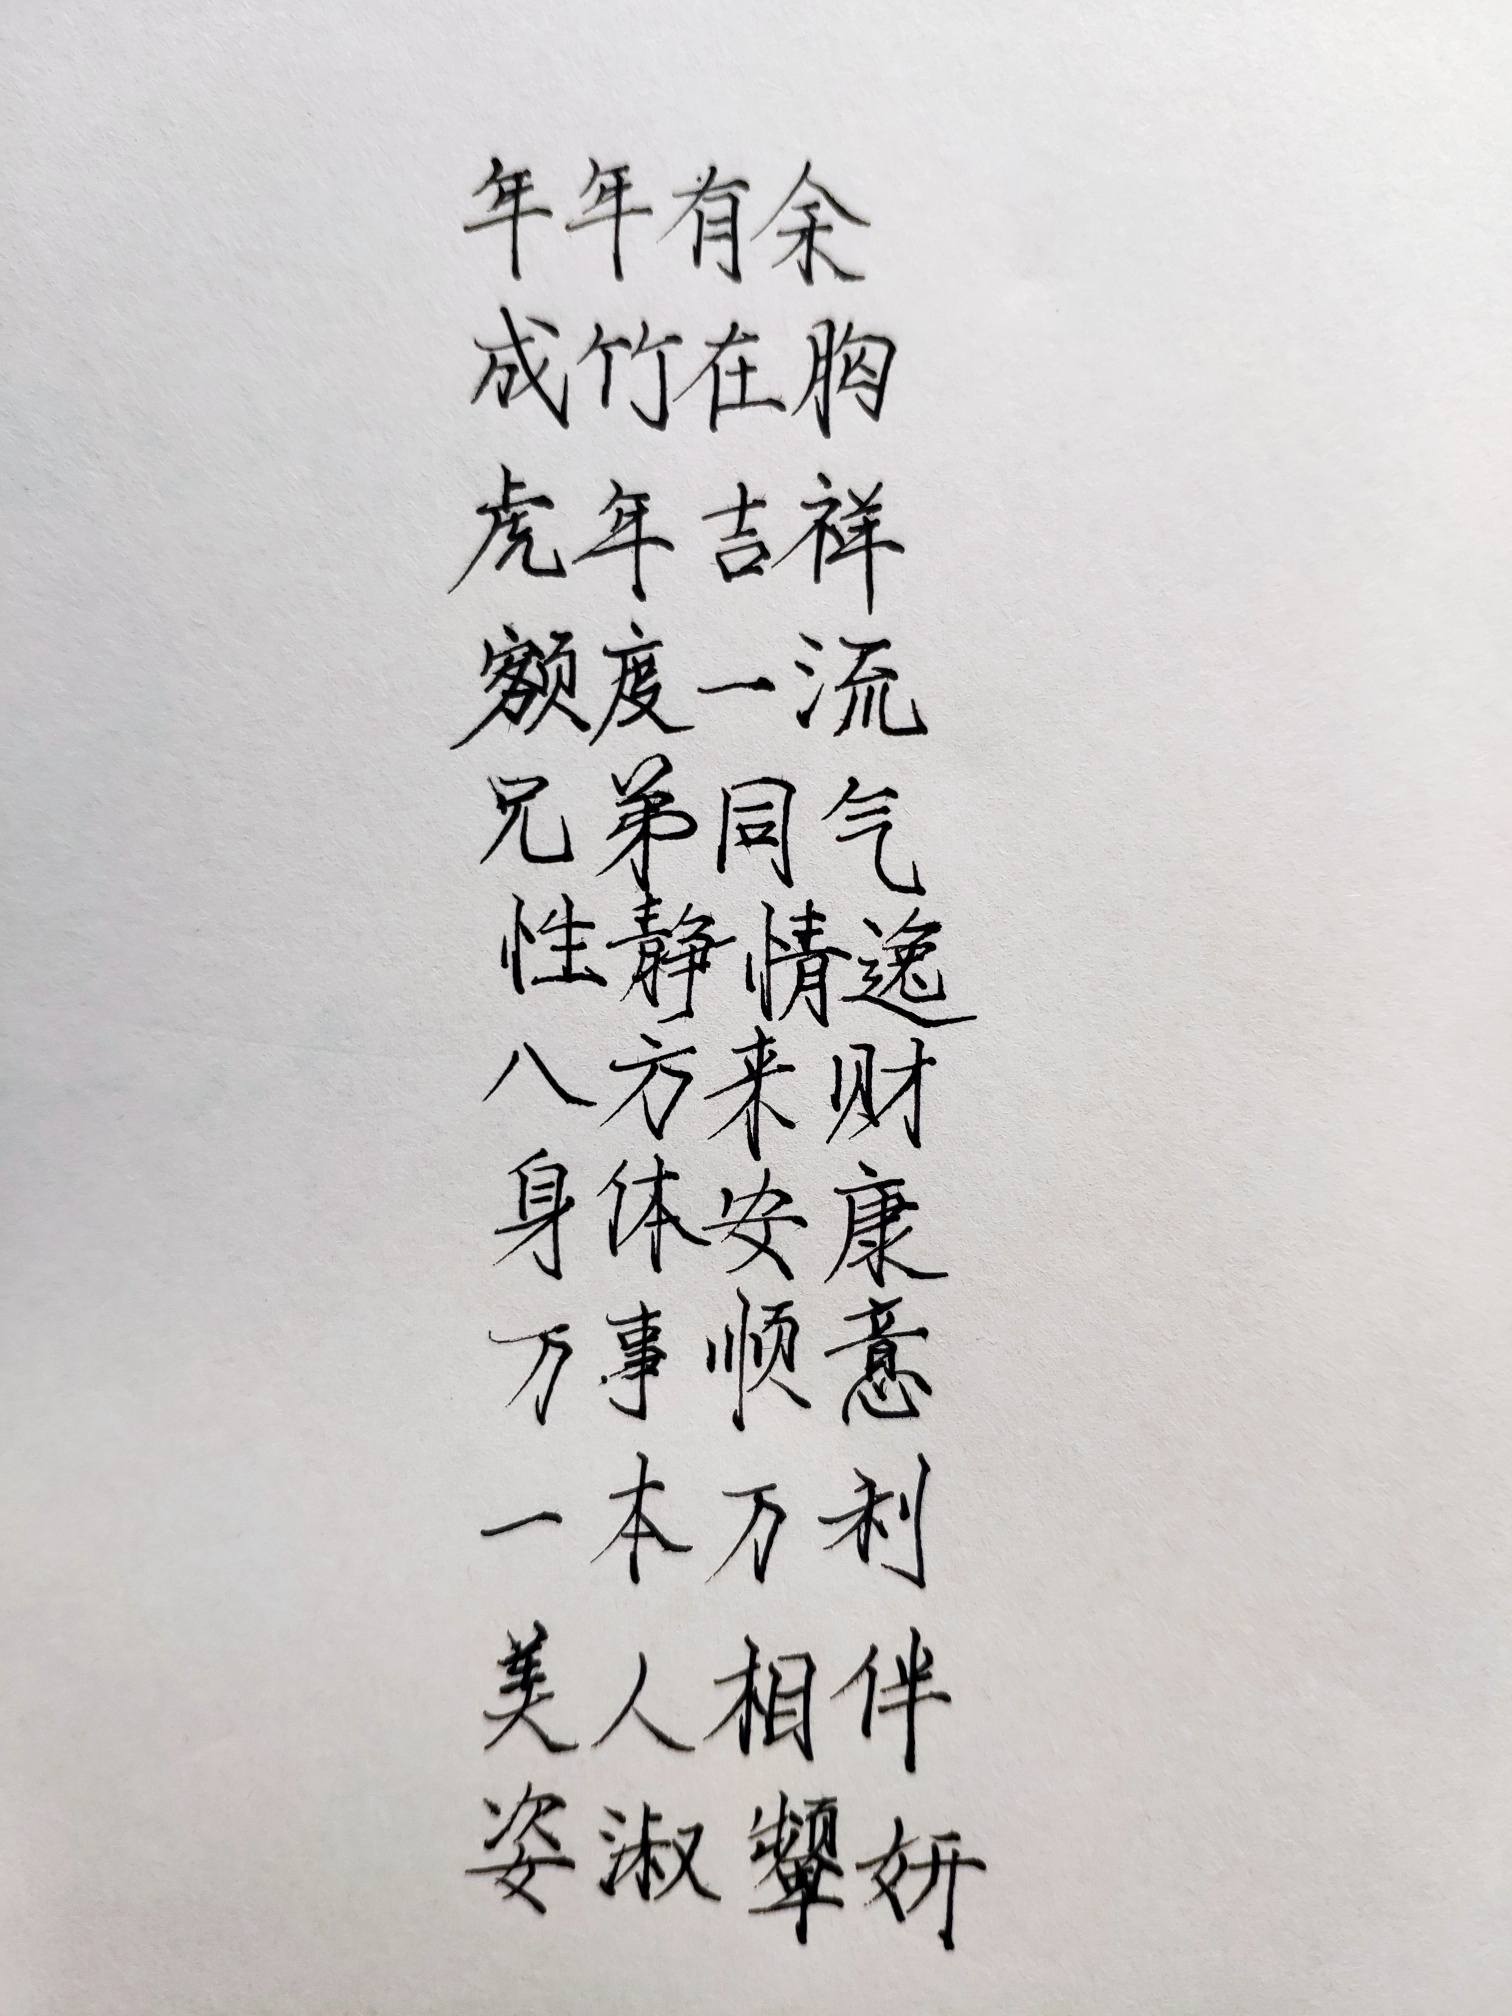 年年有余
成竹在胸
虎年吉祥
额度一流
兄弟同气
性静情逸
八方来财
身体安康
万事顺意
一本万利
美人相伴
姿淑颦妍